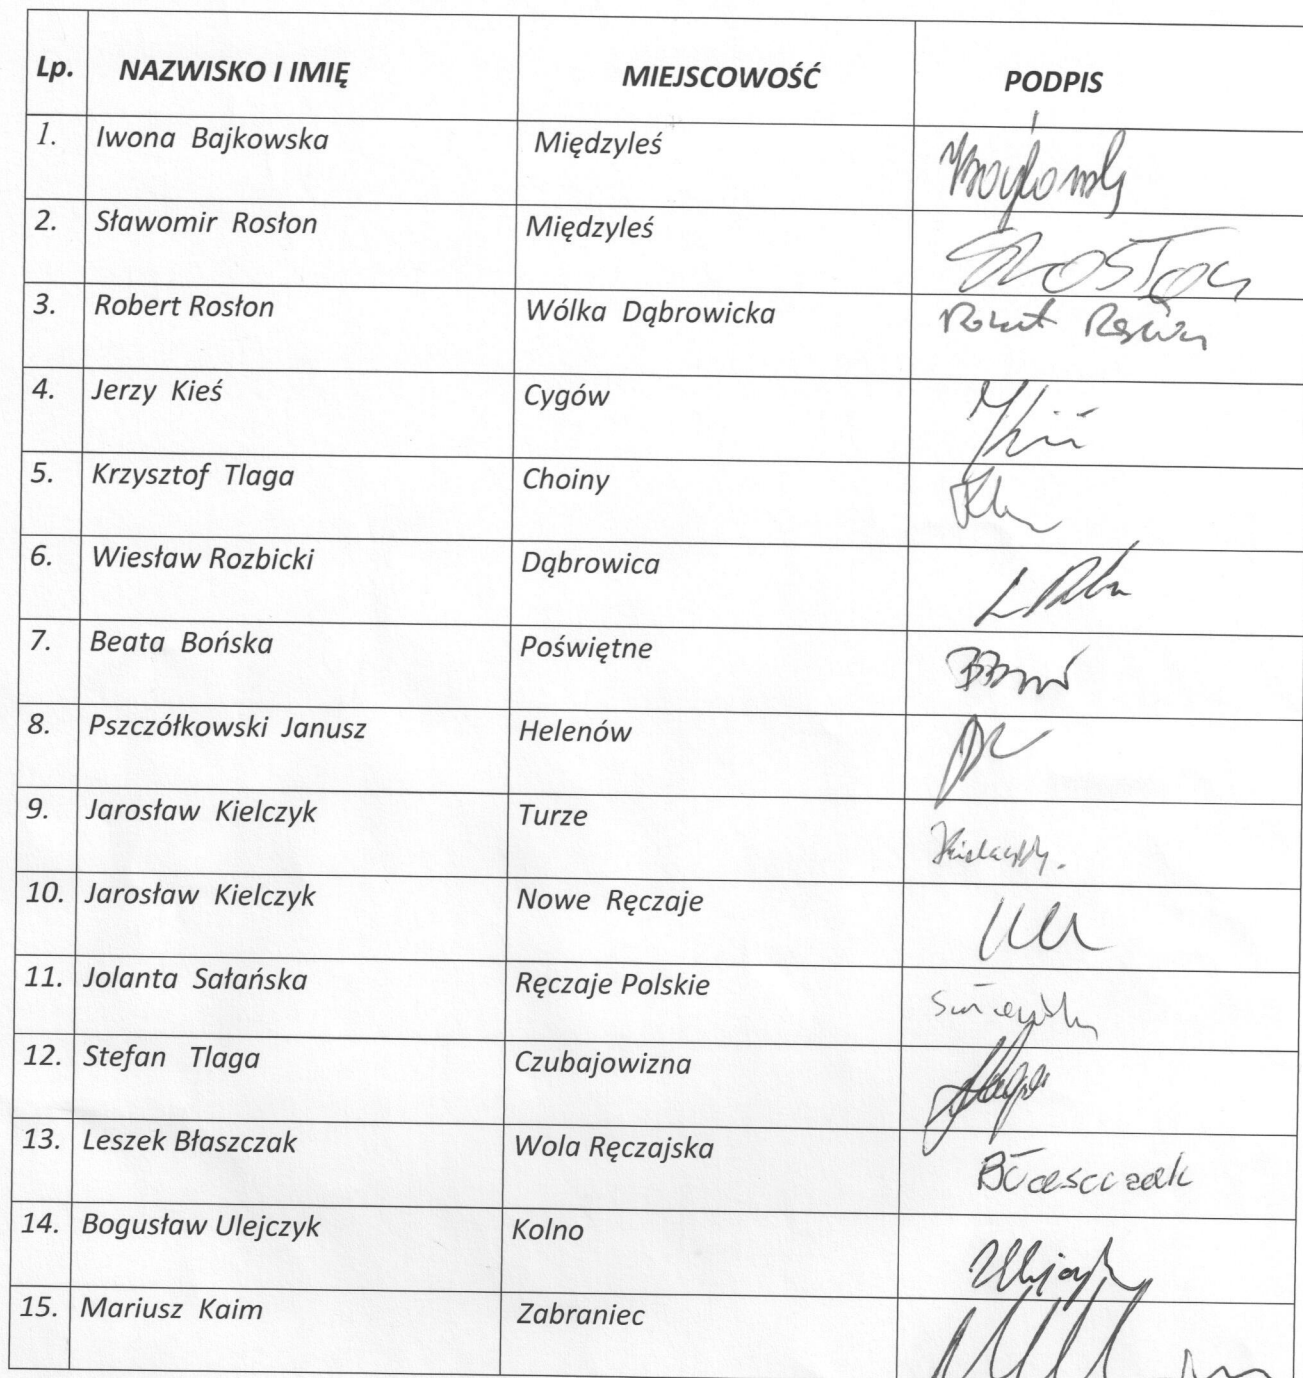 Lp. NAZWISKO I IMIĘ MIEJSCOWOŚĆ PODPIS
1. Iwona Bajkowska Międzyleś
2. Sławomir Rosłon Międzyleś SRosłon
3. Robert Rosłon Wólka Dąbrowicka Robert Rosłon
4. Jerzy Kieś Cygów
5. Krzysztof Tlaga Choiny
6. Wiesław Rozbicki Dąbrowica
7. Beata Bońska Poświętne
8. Pszczółkowski Janusz Helenów
9. Jarosław Kielczyk Turze
10. Jarosław Kielczyk Nowe Ręczaje
11. Jolanta Sałańska Ręczaje Polskie
12. Stefan Tlaga Czubajowizna
13. Leszek Błaszczak Wola Ręczajska Błaszczak
14. Bogusław Ulejczyk Kolno
15. Mariusz Kaim Zabraniec